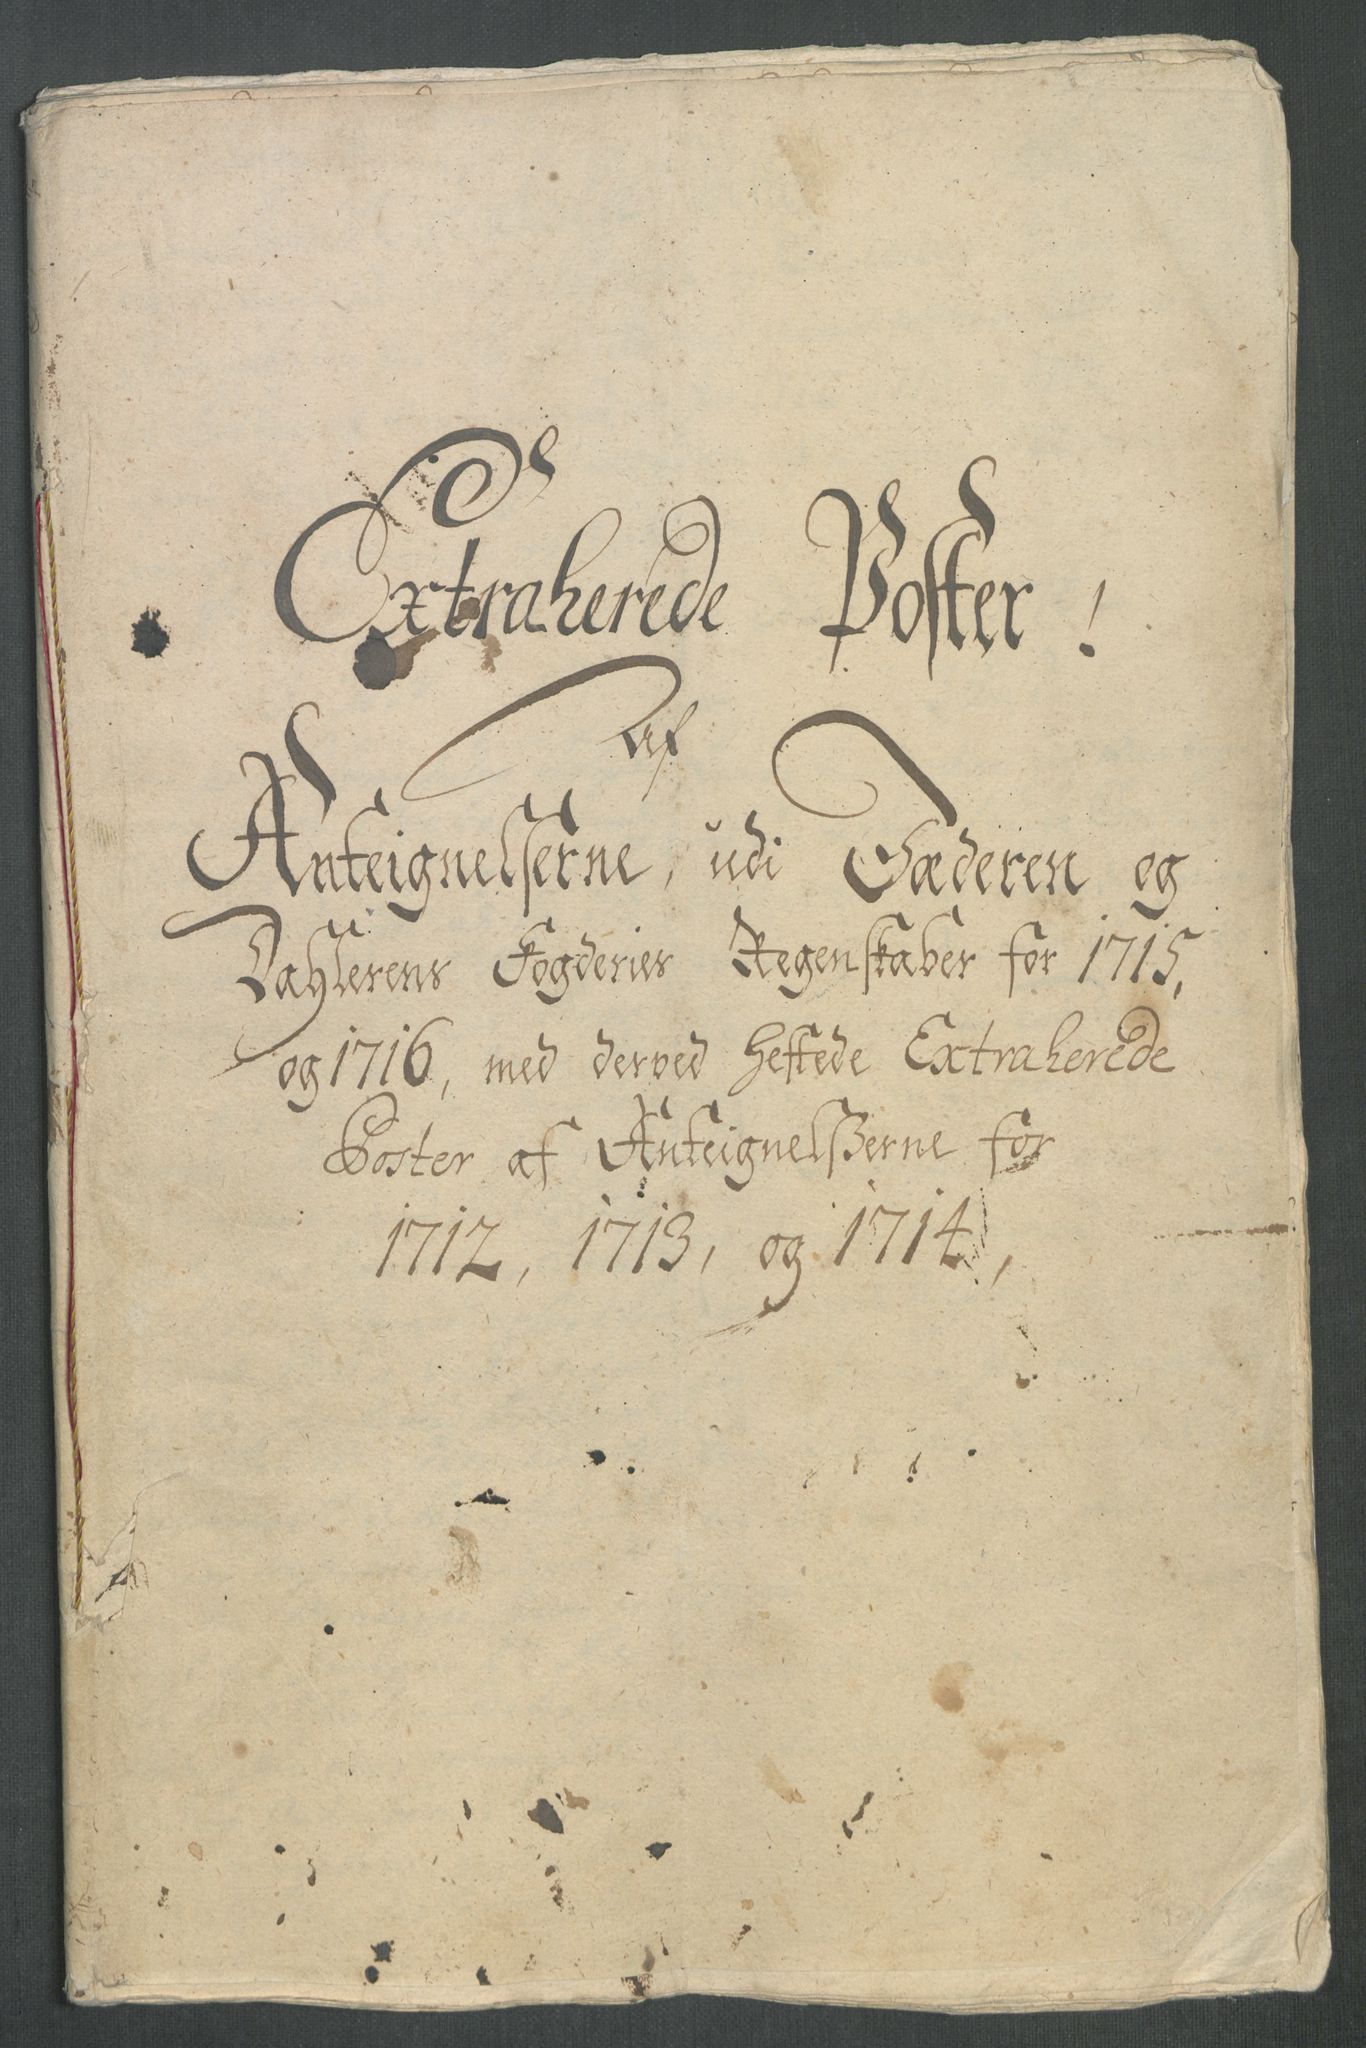 Extraherede Poster!
af
Anteignelserne, udi Jæderen og
Dahlerens Fogderies Regenskaber for 1715,
og 1716, med derved heftede Extraherede
Poster af Anteignelsserne for
1712, 1713, og 1714,